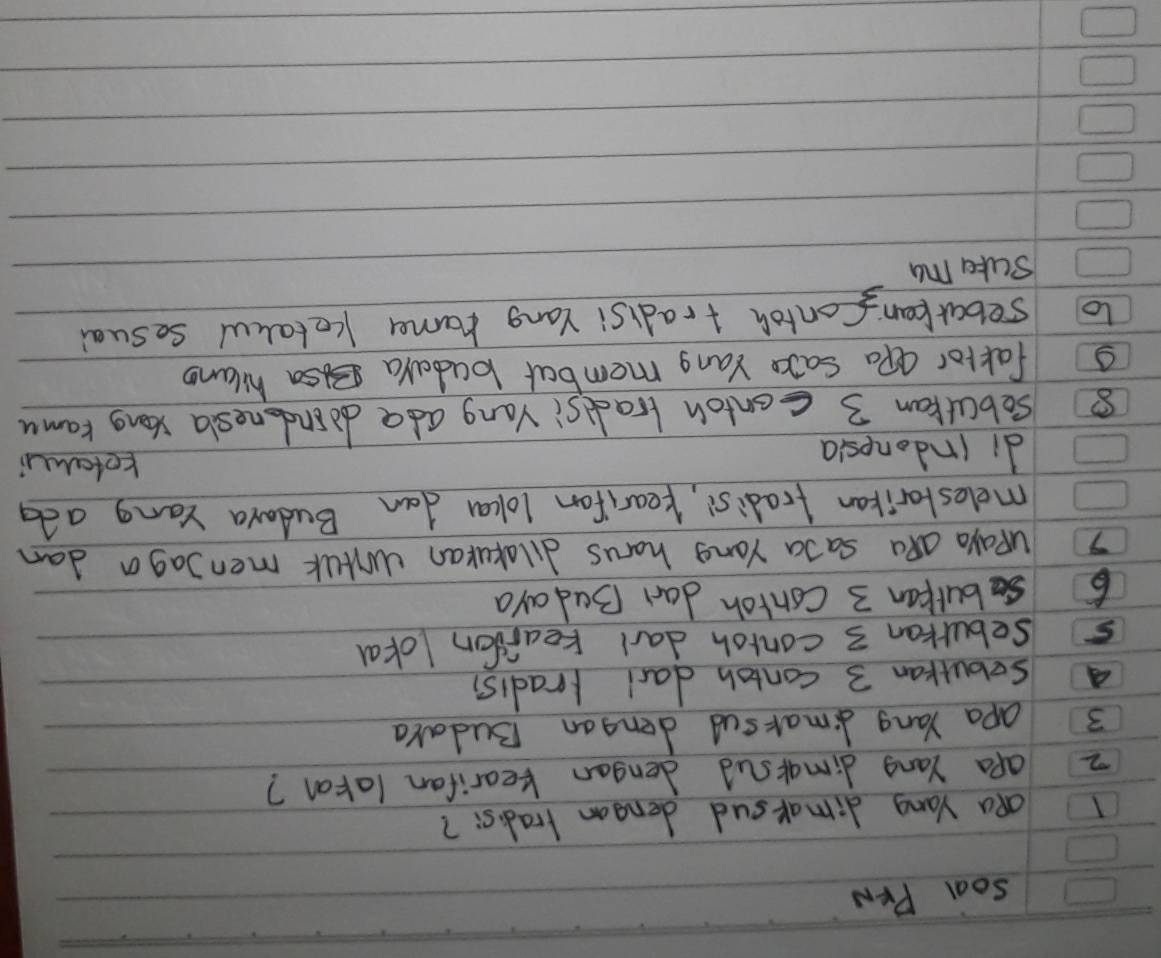 Soal PKN
1 apa Yang dimaksud dengan tradisi?
2 apa Yang dimaksud dengan kearifan lokal?
3 apa Yang dimaksud dengan Budaya
4 Sebutkan 3 contoh dari tradisi
5 Sebutkan 3 contoh dari kearifan lokal
6 Sebutkan 3 contoh dari Budaya
7 upaya apa saja Yang harus dilakukan untuk menjaga dan
melestarikan tradisi, kearifan lokal dan Budaya Yang ada
di Indonesia
8 Sebutkan 3 Contoh tradisi Yang ada diindonesia Yang kamu
ketahui
9 faktor apa saja Yang membut budaya Bisa hilang
10 Sebutkan 3 Contoh tradisi Yang kamu ketahui sesuai
Suku mu